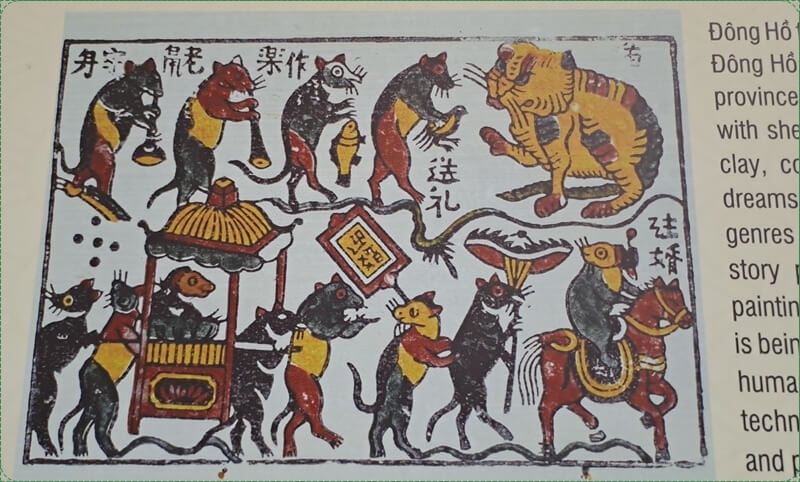 老 楽作
送礼
婚
Đông Hồ t
Đông Hồ
province
with she
clay, co
dreams
genres
story p
paintin
is bein
huma
techn
and p